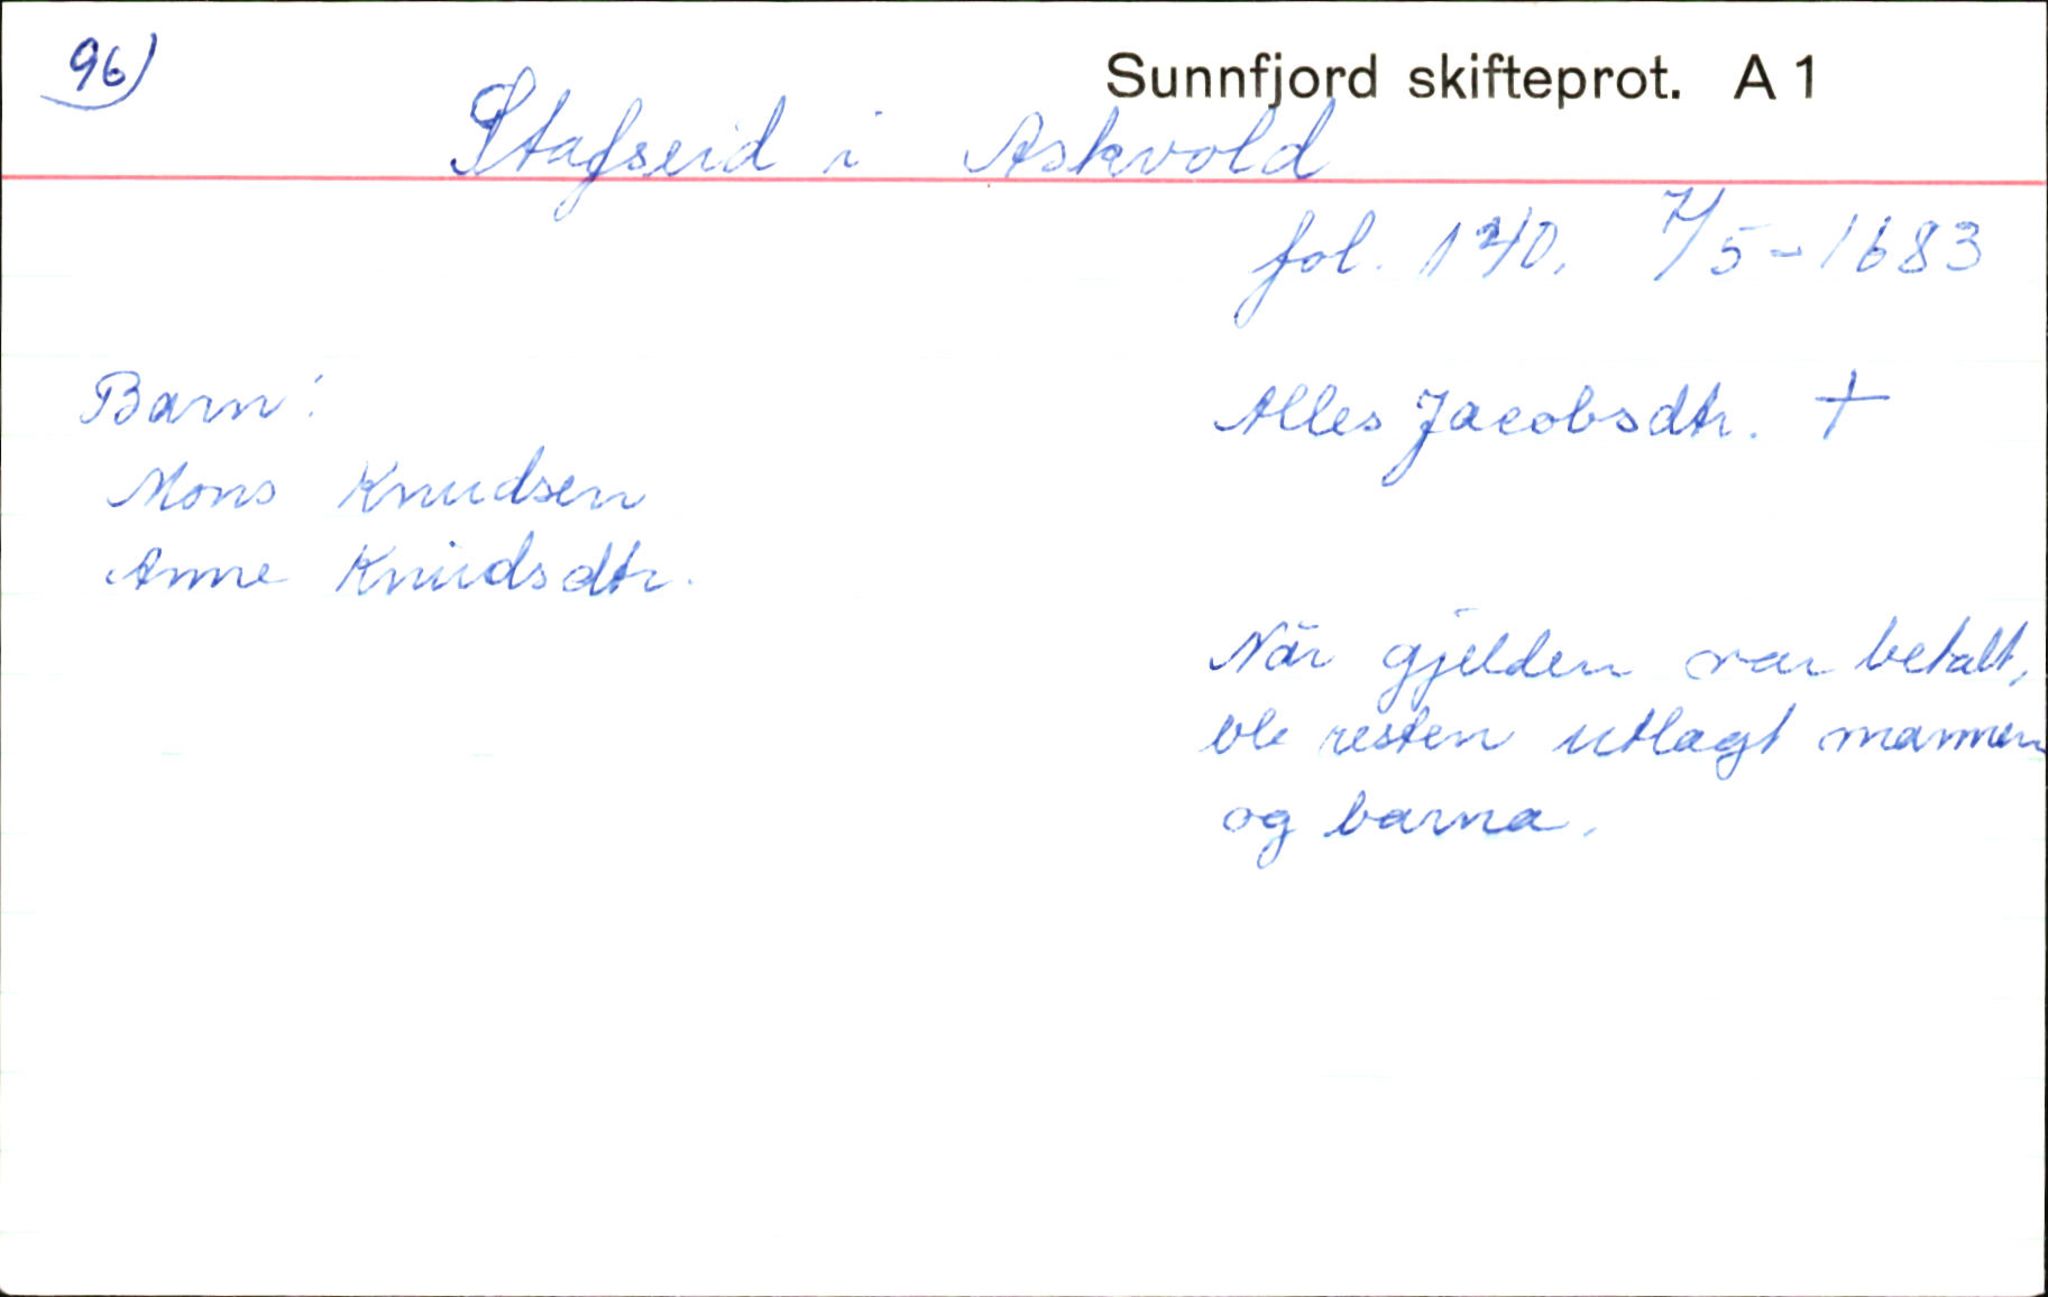 96)
Sunnfjord skifteprot. A 1
Stafseid i Askvold
fol. 140, 7/5-1683
Barn:
Alles Jacobsdtr. +
Mons Knudsen
Anne Knudsdtr.
Når gjelden var betalt,
ble resten utlagt mannen
og barna.